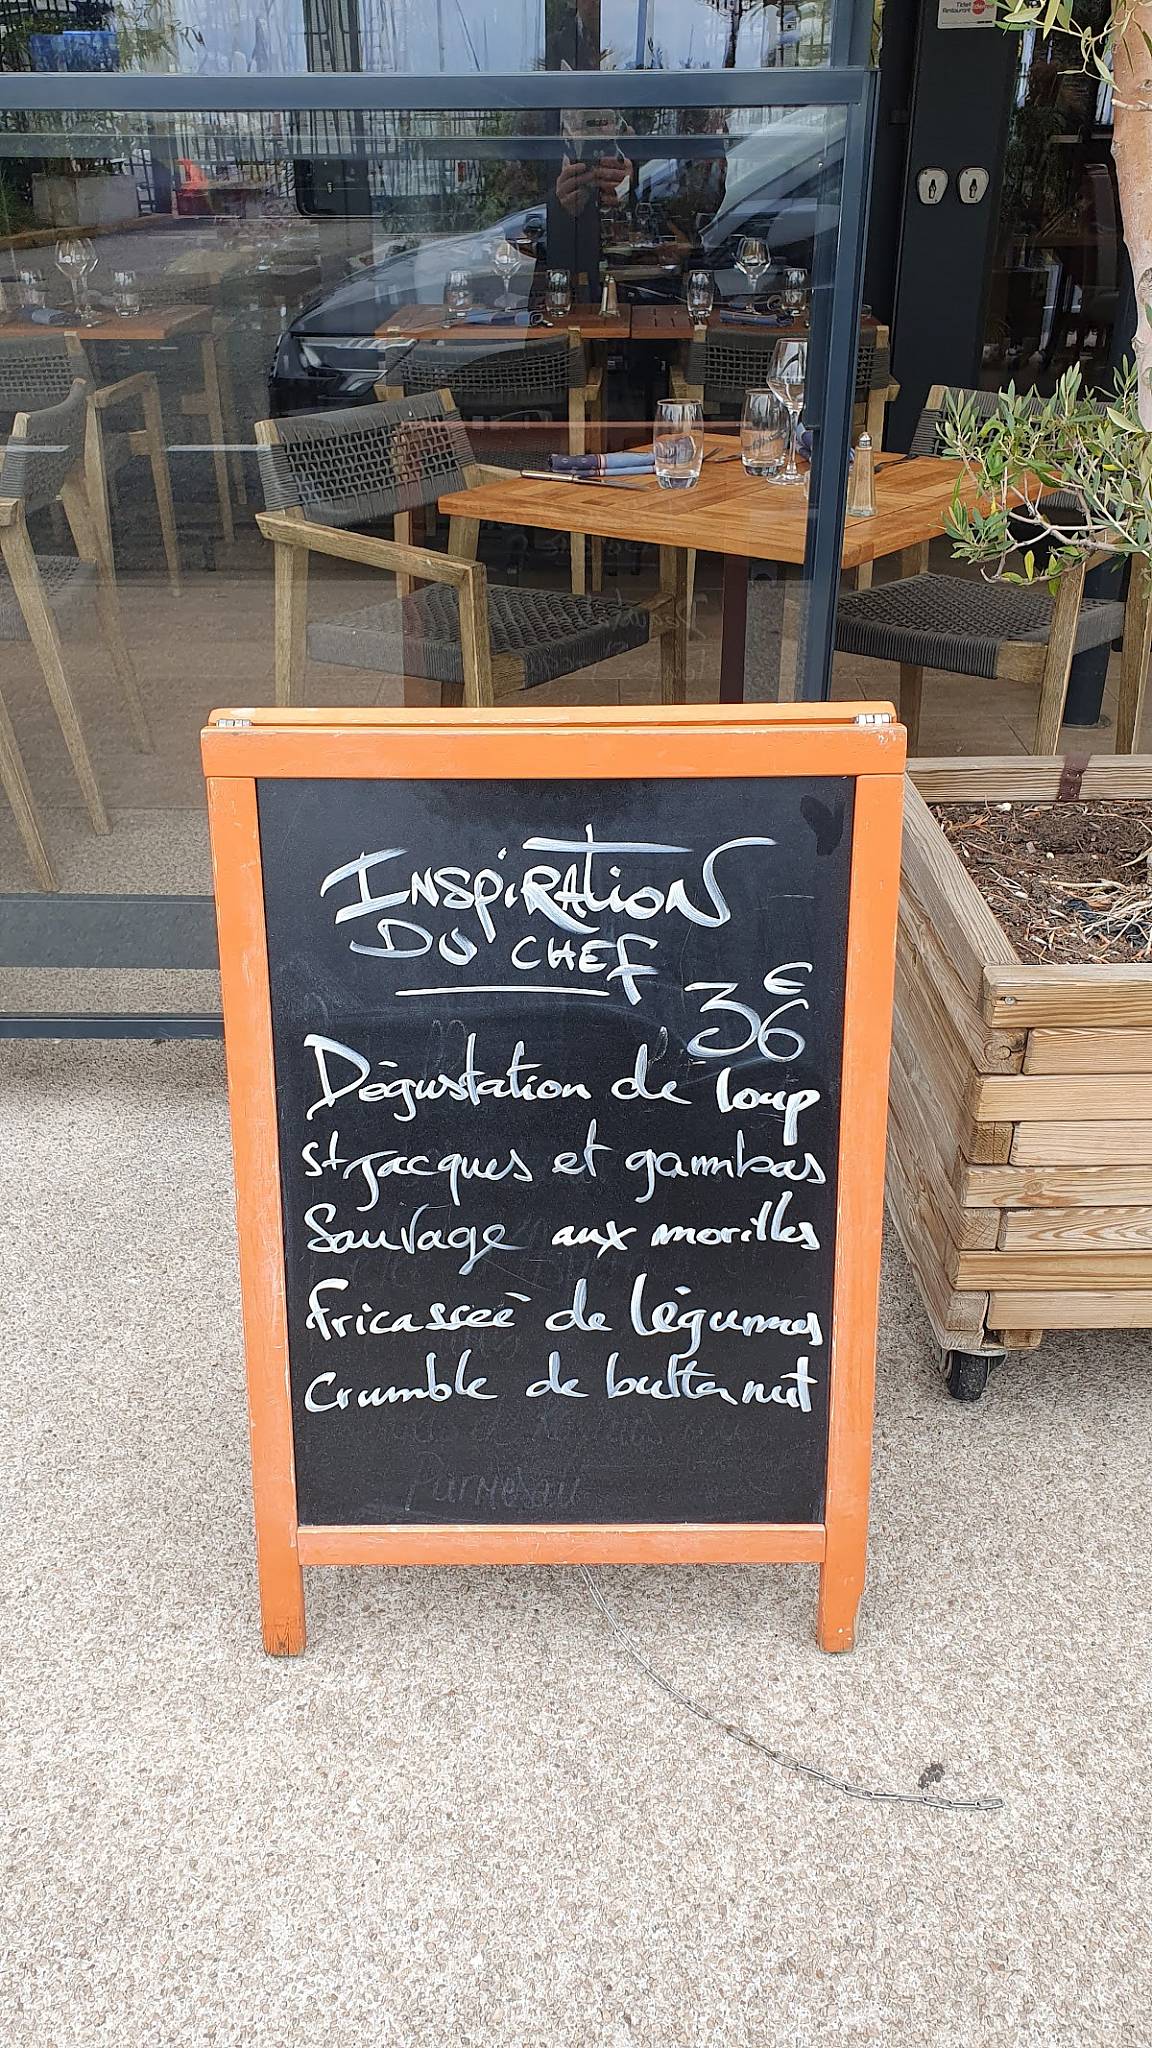 Ticket
Restaurant
INSPIRATION
DU CHEF
36€
Dégustation de loup
St Jacques et gambas
Sauvage aux morilles
fricasseè de légumes
Crumble de butternut
Parmesan